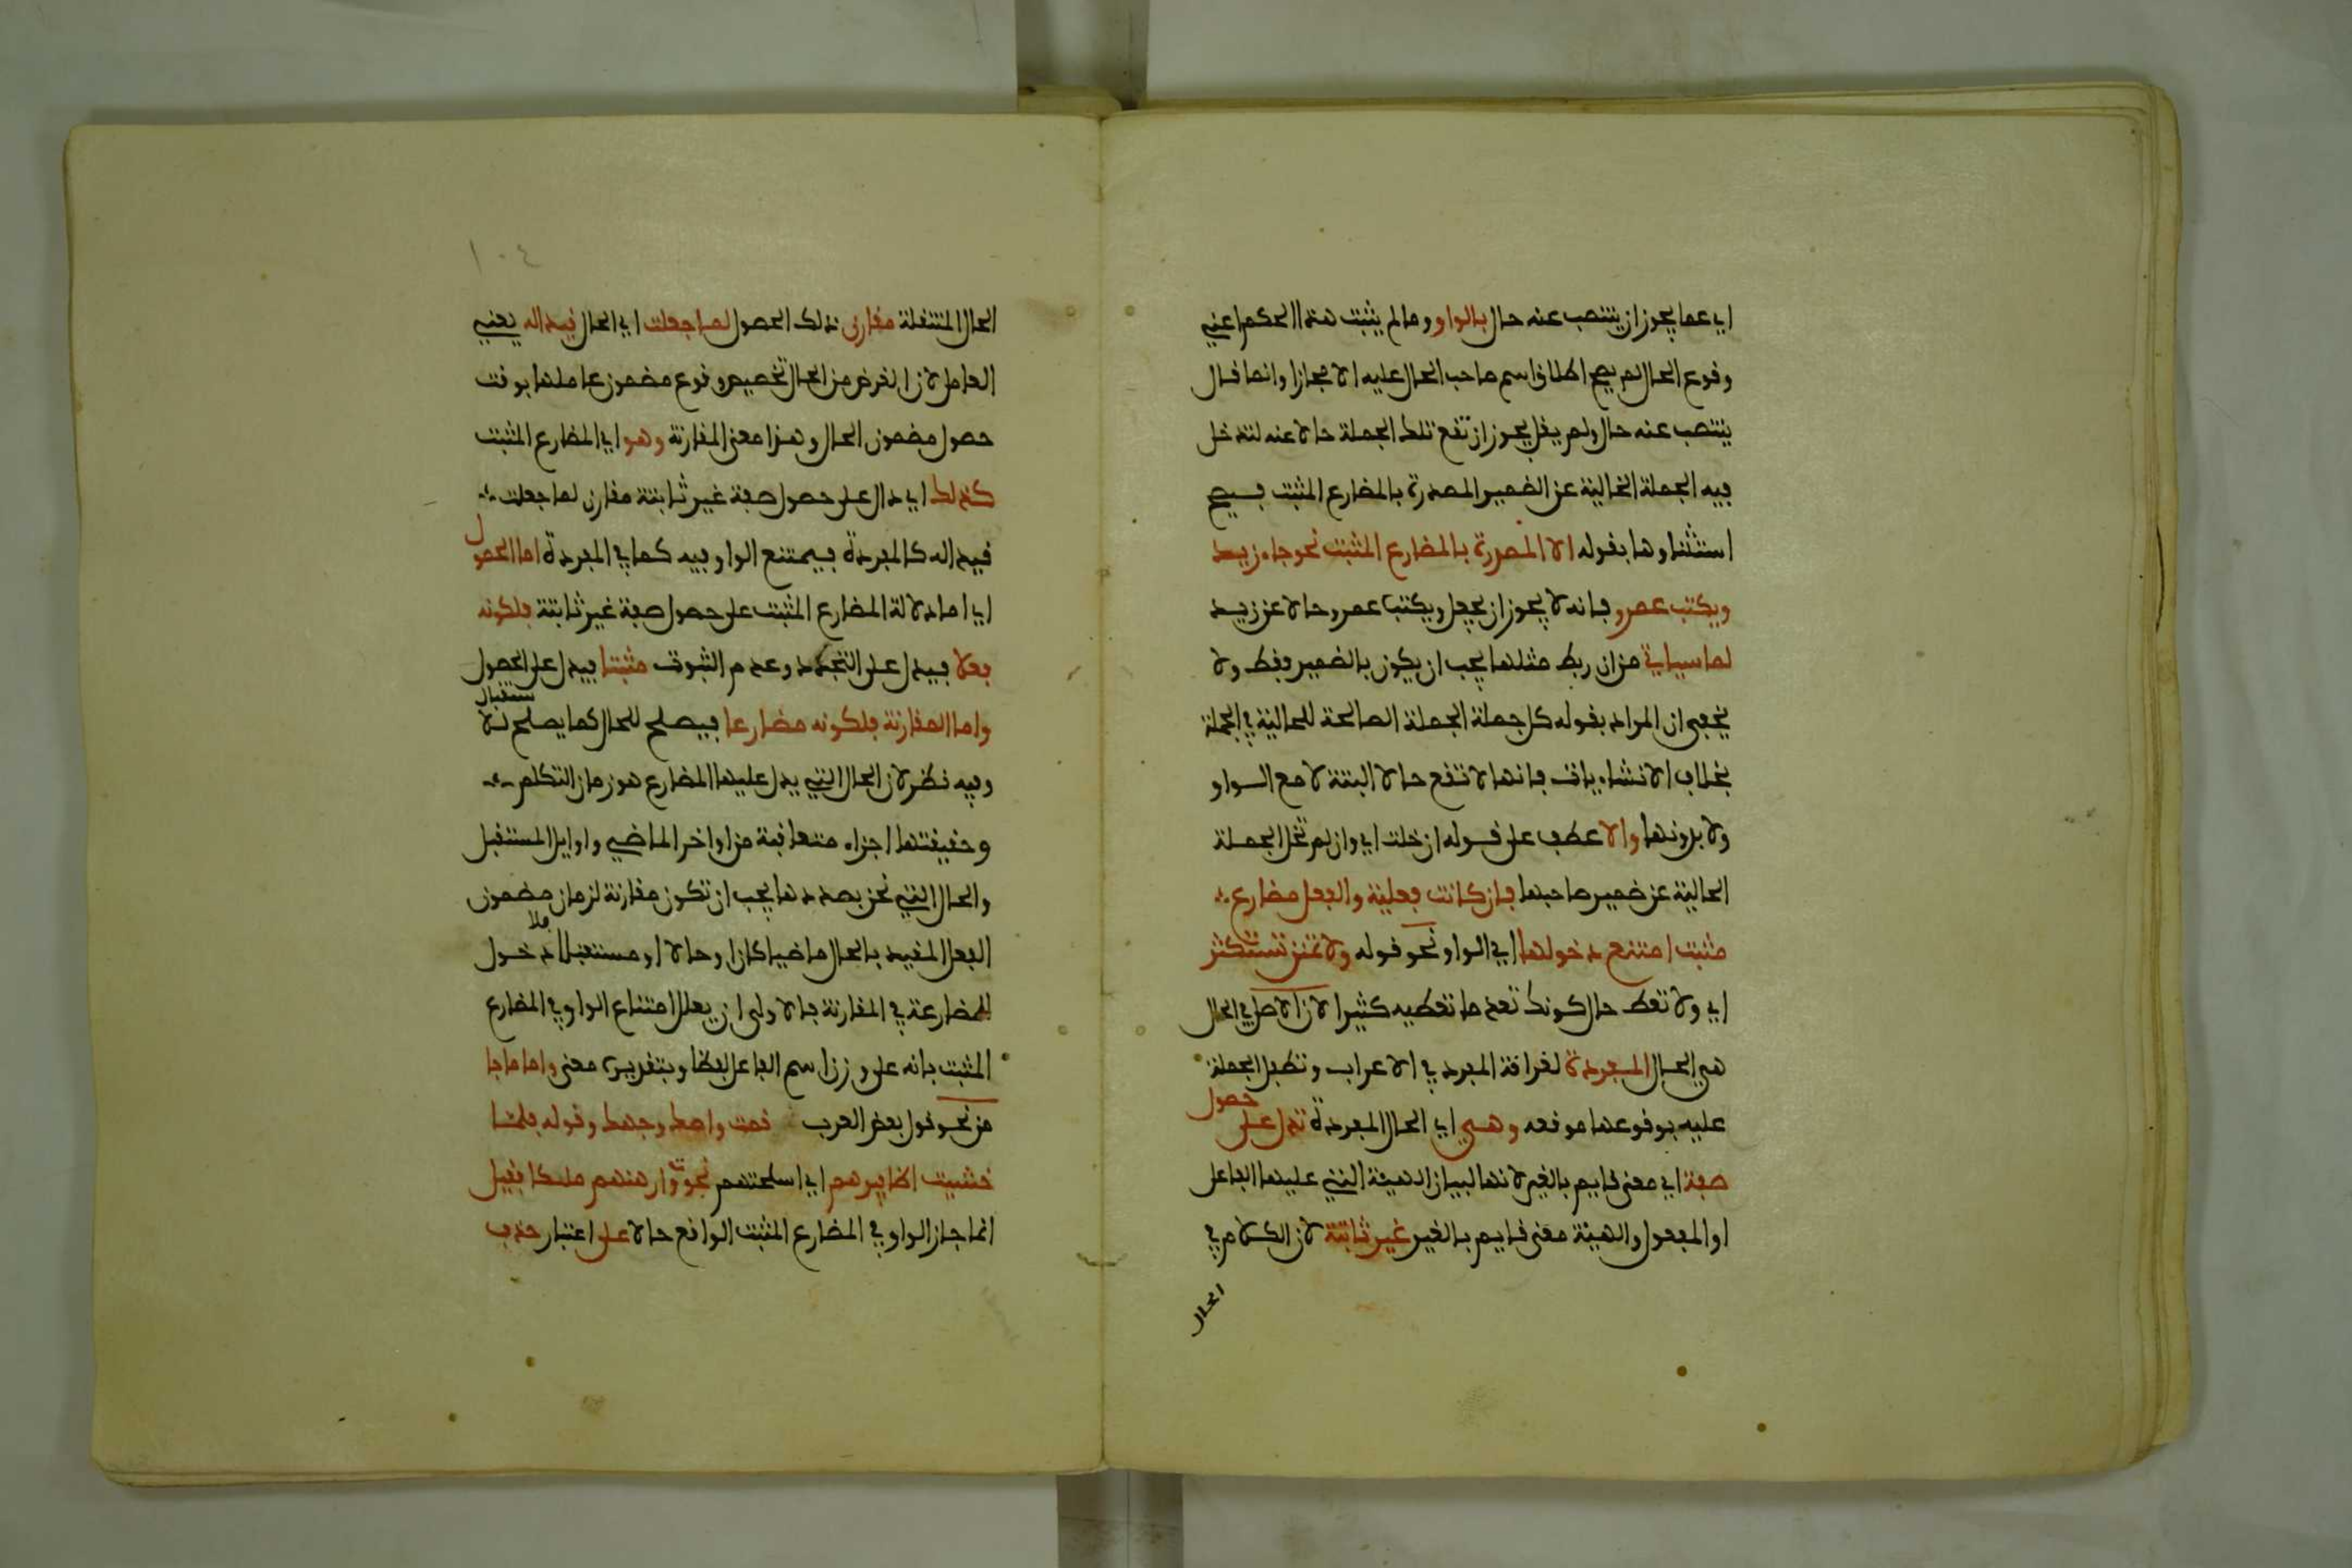 اي عما يجوز ان ينتصب عنه حال بالواو وما لم يثبت هذا الحكم اعني
وقوع الحال لم يصح اطلاق اسم صاحب الحال عليه الا مجازا وانما قال
ينتصب عنه حال ولم يقل يجوز ان تقع تلك الجملة حالا عنه لتدخل
فيه الجملة الخالية عن الضمير المصدرة بالمضارع المثبت فيصح
استثناوها بقوله الا المصدرة بالمضارع المثبت نحو جاء زيد
ويكتب عمرو فانه لا يجوز ان يجعل ويكتب عمرو حالا عن زيد
لما سياتي من ان ربط مثلها يجب ان يكون بالضمير فقط ولا
يخفى ان المراد بقوله كل جملة الجملة الصالحة للحالية في الجملة
بخلاف الانشاءيات فانها لا تقع حالا البتة لا مع الواو
ولا بدونها والا عطف على قوله ان خلت اي وان لم تخل الجملة
الحالية عن ضمير صاحبها فان كانت فعلية والفعل مضارع
مثبت امتنع دخولها اي الواو نحو قوله ولا تمنن تستكثر
اي ولا تعط حال كونك تعد ما تعطيه كثيرا لان الاصل في الحال
هي الحال المفردة لعراقة المفرد في الاعراب وتطفل الجملة
عليه بوقوعها موقعه وهي اي الحال المفردة تدل على حصول
صفة اي معنى قايم بالغير لانها لبيان الهيئة التي عليها الفاعل
او المفعول والهيئة معنى قايم بالغير غير ثابتة لان الكلام في
الحال
١٠٤
الحال المنتقلة مقارن ذلك الحصول لما جعلت اي الحال قيدا له يعني
العامل لان الغرض من الحال تخصيص وقوع مضمون عاملها بوقت
حصول مضمون الحال وهذا معنى المقارنة وهو اي المضارع المثبت
كذلك اي دال على حصول صفة غير ثابتة مقارن لما جعلت
قيدا له كالمفردة فيمتنع الواو فيه كما في المفردة اما الحصول
اي اما دلالة المضارع المثبت على حصول صفة غير ثابتة فلكونه
فعلا فيدل على التجدد وعدم الثبوت مثبتا فيدل على الحصول
واما المقارنة فلكونه مضارعا فيصلح للحال كما يصلح للاستقبال
وفيه نظر لان الحال التي يدل عليها المضارع هو زمان التكلم
وحقيقتها اجزاء متعاقبة من اواخر الماضي واوايل المستقبل
والحال التي نحن بصددها يجب ان تكون مقارنة لزمان مضمون
الفعل المقيد بالحال ماضيا كان او حالا او مستقبلا فلا دخول
للمضارعة في المقارنة فالاولى ان يعلل امتناع الواو في المضارع
المثبت بانه على وزن اسم الفاعل لفظا وبتقديره معنى واما ما جا
من نحو قول بعض العرب قمت واصك وجهه وقوله فلما
خشيت اظافيرهم اي اسلحتهم نجوت وارهنهم ملكا فقيل
انما جاز الواو في المضارع المثبت الواقع حالا على اعتبار حذف